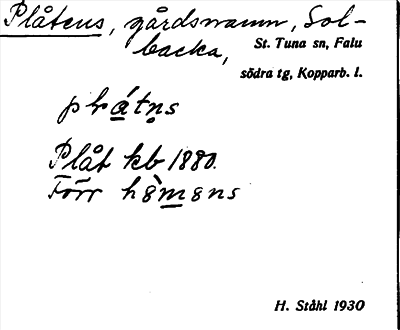 Plåtens, gårdsnamn, Sol-
backa,
St. Tuna sn, Falu
södra tg, Kopparb. l.
plátn̥s
Plåt kb 1880.
Förr hèmens
H. Ståhl 1930